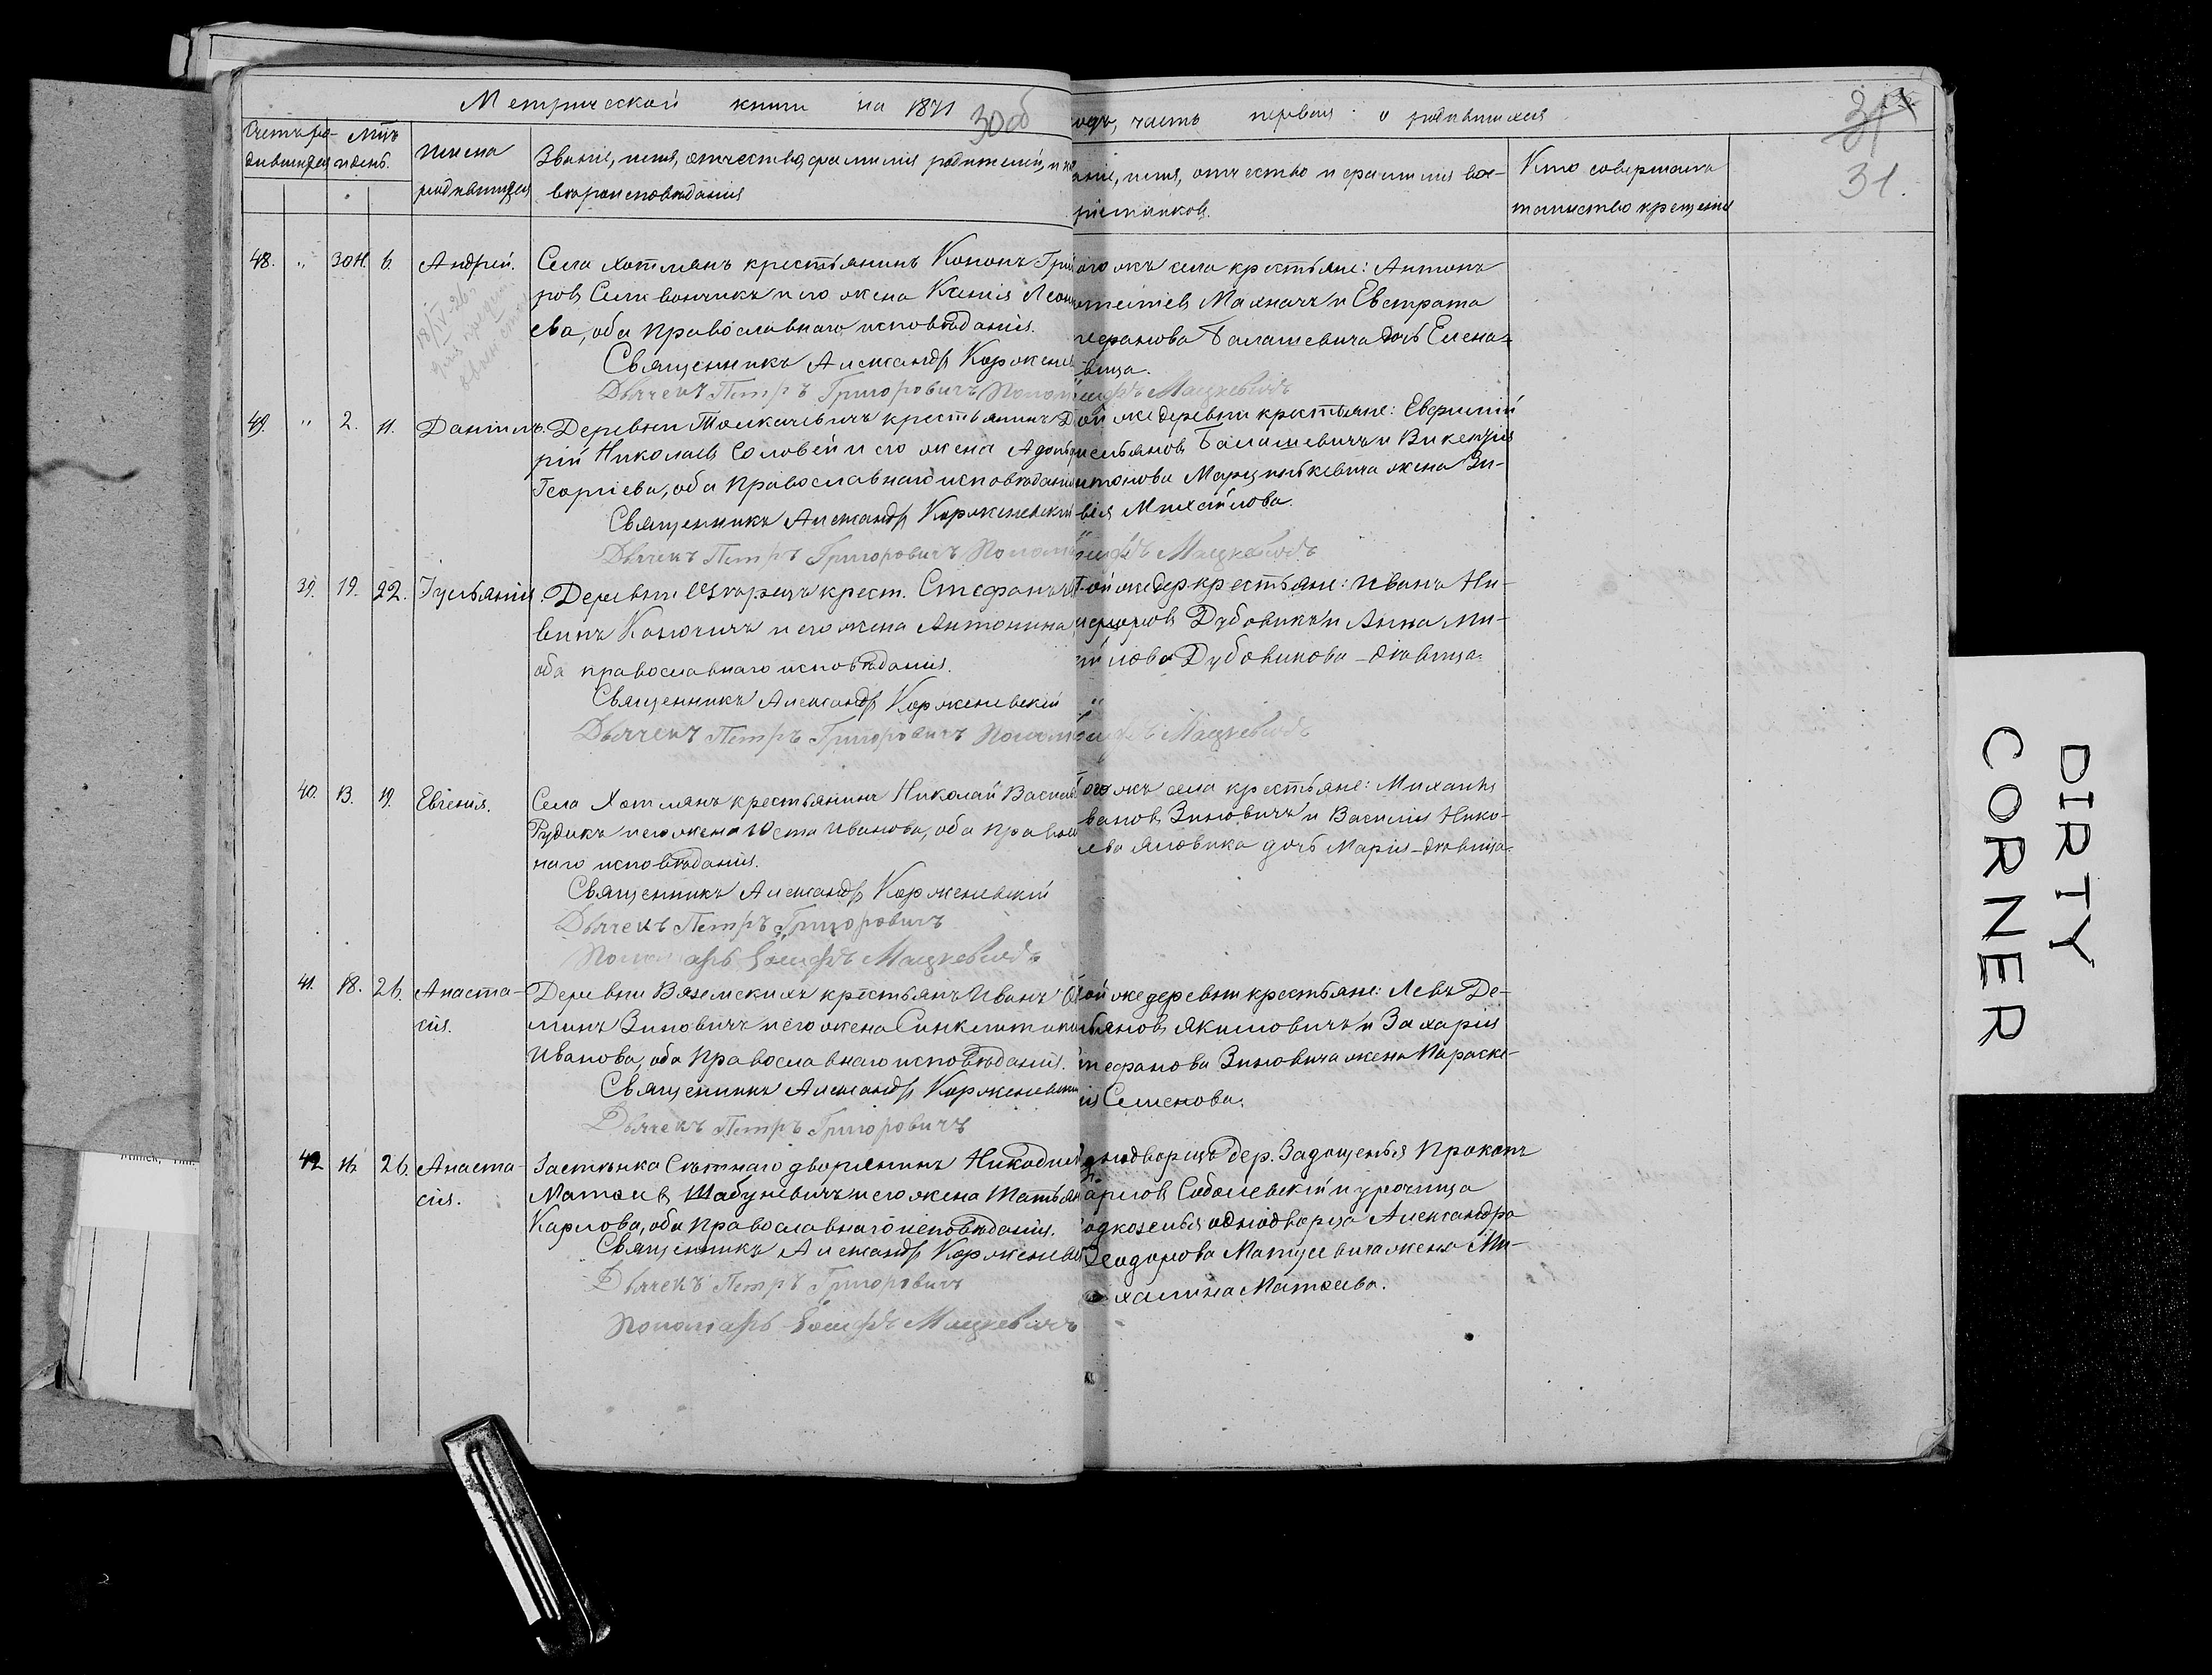 Метрической книги на 1871
30об
одъ, часть первая о родившихся
31
31.
Счетъ ро-
дившихся
Мцъ
и день.
Имена
родившихся
Званіе, имя, отчество, фамилія родителей, и ка
вѣроисповѣданія
аніе, имя, отчество и фамилія вос-
пріемниковъ.
Кто совершалъ
таинство крещенія
48. " 30 Н. 6. Андрей.
Села Хотлянъ крестьянинъ Кононъ Гри
ровъ Селивончикъ и его жена Ксенія Леон
ева, оба православнаго исповѣданія.
Священникъ Александръ Корженев
Дьячекъ Петръ Григоровичъ Поном
18/IV-26.
ого жъ села крестьяне: Антонъ
Малначъ и Евстрата
Балашевича дочь Елена-
вица.
Мацкевичъ
49. " 2. 11. Даніилъ.
Деревни Толкачевичъ крестьянинъ Д
рій Николаевъ Соловей и его жена Агаѳ
Георгіева, оба Православнаго исповѣданія
Священникъ Александръ Корженевскій
Дьячекъ Петръ Григоровичъ Поном
ой же деревни крестьяне: Евфимій
Балашевичъ и Викентія
Марцинкевича жена Зи-
вія Михайлова.
Мацкевичъ
39. 19. 22. Іуліанія.
Деревни крест. Стефанъ
винъ Канючичъ и его жена Антонина
оба православнаго исповѣданія.
Священникъ Александръ Корженевскій
Дьячекъ Петръ Григоровичъ Поном
той же дер крестьяне: Иванъ Ни-
Дубовикъ и Анна Ми-
йлова Дубовикова - дѣвица.
Мацкевичъ
40. 13. 19. Евгенія.
Села Хотлянъ крестьянинъ Николай Василь
Рудикъ и его жена Юста Иванова, оба правос
наго исповѣданія.
Священникъ Александръ Корженевскій
Дьячекъ Петръ Григоровичъ
Пономарь Іосифъ Мацкевичъ
того жъ села крестьяне: Михаилъ
вановъ Зиновичъ и Василія Нико-
ева Яловика дочь Марія - дѣвица.
41. 18. 26. Анаста-
сія.
Деревни Вяземскихъ крестьянъ Иванъ
минъ Зиновичъ и его жена Синклитикі
Иванова, оба Православнаго исповѣданія.
Священникъ Александръ Корженевскі
Дьячекъ Петръ Григоровичъ
ой же деревни крестьяне: Левъ Де-
ьяновъ Якимовичъ и Захарія
тефанова Зиновича жена Параске-
ія Семенова.
42 16 26. Анаста-
сія.
Застѣнка Слѣтнаго дворянинъ Никодим
Матѳеевъ Шабуневичъ и его жена Татьян
Карлова, оба Православнаго исповѣданія.
Священникъ Александръ Корженевс
Дьячекъ Петръ Григоровичъ
Пономарь Іосифъ Мацкевичъ
днодворцы дер. Задощенья Прокопъ
арповъ Соболевскій и урочища
одкозелья однодворца Александра
Ѳеодорова Матусевича жена Ми-
халина Матѳеева.
DIRTY
CORNER